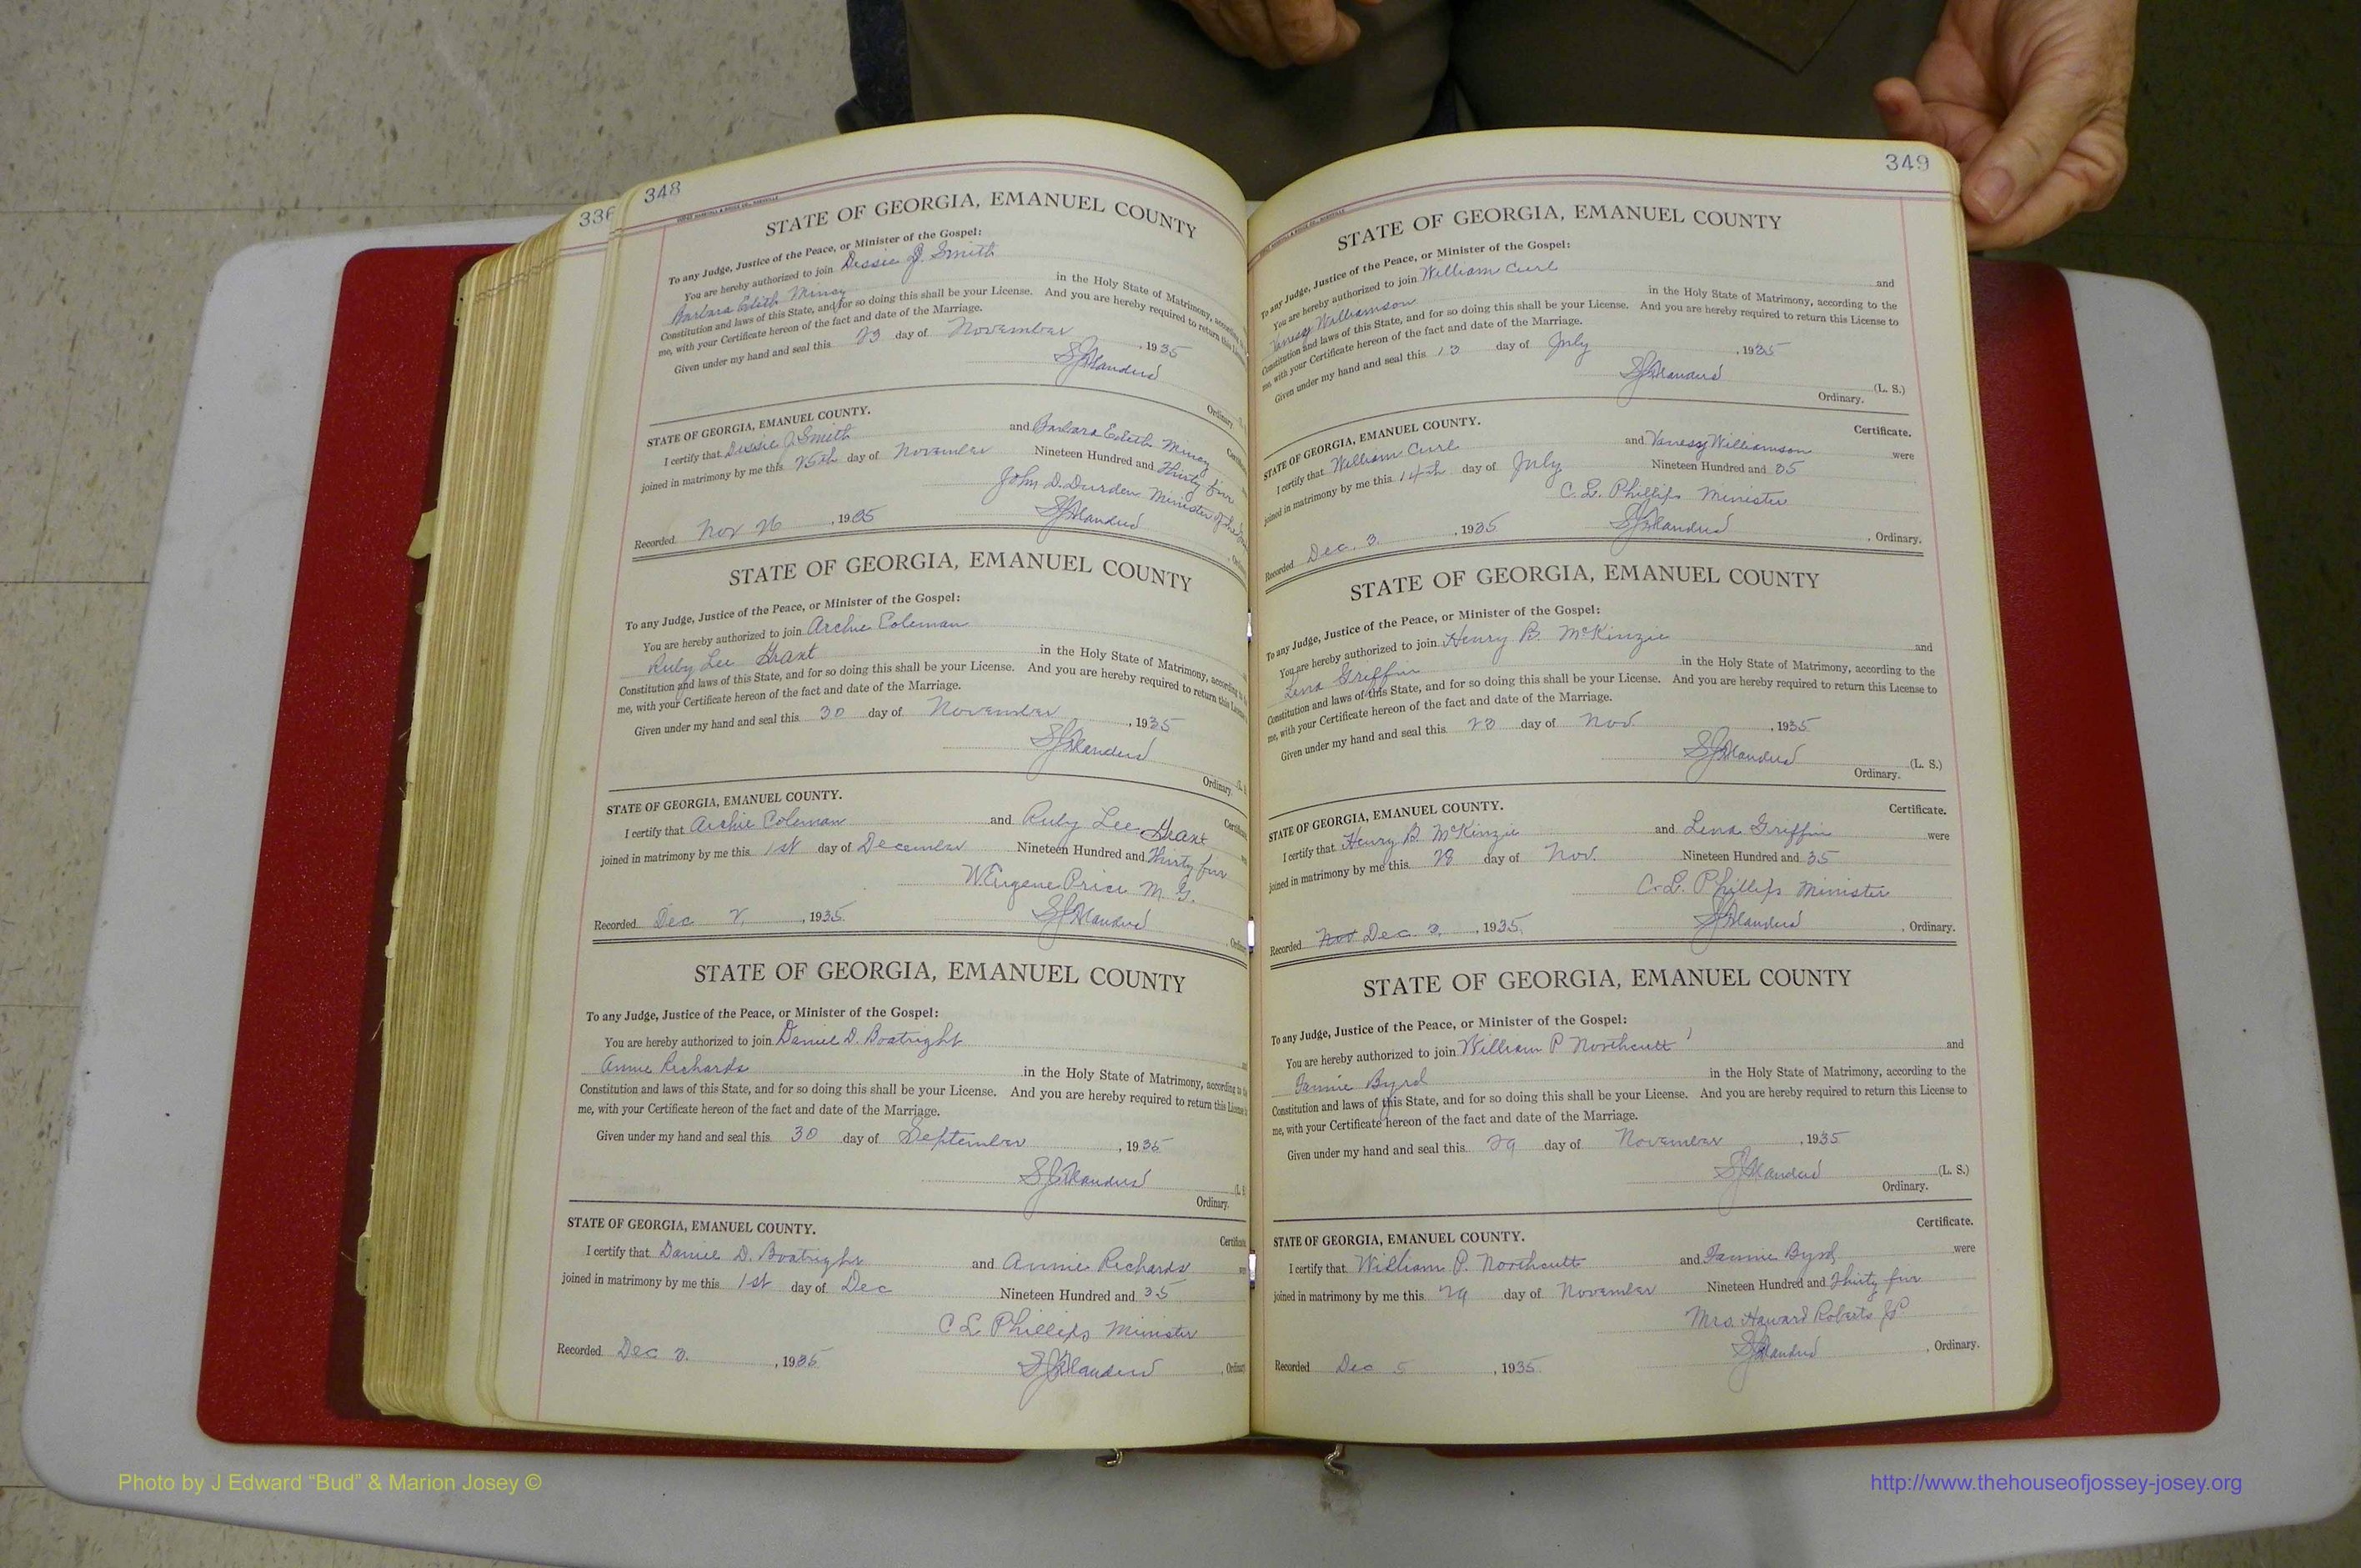 336
348
STATE OF GEORGIA, EMANUEL COUNTY
To any Judge, Justice of the Peace, or Minister of the Gospel:
You are hereby authorized to join Dessie J. Smith
Barbara Edith Mincy in the Holy State of Matrimony, according
Constitution and laws of this State, and for so doing this shall be your License. And you are hereby required to return this License
me, with your Certificate hereon of the fact and date of the Marriage.
Given under my hand and seal this 23 day of November, 1935
Ordinary.
STATE OF GEORGIA, EMANUEL COUNTY.
I certify that Dessie J Smith and Barbara Edith Mincy
joined in matrimony by me this 25th day of November Nineteen Hundred and Thirty five
John D. Durden Minister of the
Recorded Nov 26, 1935
STATE OF GEORGIA, EMANUEL COUNTY
To any Judge, Justice of the Peace, or Minister of the Gospel:
You are hereby authorized to join Archie Coleman
Ruby Lee Grant in the Holy State of Matrimony, according
Constitution and laws of this State, and for so doing this shall be your License. And you are hereby required to return this License
me, with your Certificate hereon of the fact and date of the Marriage.
Given under my hand and seal this 30 day of November, 1935
Ordinary.
STATE OF GEORGIA, EMANUEL COUNTY.
I certify that Archie Coleman and Ruby Lee Grant
joined in matrimony by me this 1st day of December Nineteen Hundred and Thirty five
W Eugene Price M. G.
Recorded Dec 2, 1935
STATE OF GEORGIA, EMANUEL COUNTY
To any Judge, Justice of the Peace, or Minister of the Gospel:
You are hereby authorized to join Daniel D. Boatright
Annie Richards in the Holy State of Matrimony, according to the
Constitution and laws of this State, and for so doing this shall be your License. And you are hereby required to return this License
me, with your Certificate hereon of the fact and date of the Marriage.
Given under my hand and seal this 30 day of September, 1935
(L. S
Ordinary.
STATE OF GEORGIA, EMANUEL COUNTY.
Certificate
I certify that Daniel D. Boatright and Annie Richards
joined in matrimony by me this 1st day of Dec Nineteen Hundred and 35
C L Phillips Minister
Recorded Dec 3., 1935
349
STATE OF GEORGIA, EMANUEL COUNTY
To any Judge, Justice of the Peace, or Minister of the Gospel:
You are hereby authorized to join William Curl and
Vanessy Williamson in the Holy State of Matrimony, according to the
Constitution and laws of this State, and for so doing this shall be your License. And you are hereby required to return this License to
me, with your Certificate hereon of the fact and date of the Marriage.
Given under my hand and seal this 13 day of July, 1935
(L. S.)
Ordinary.
STATE OF GEORGIA, EMANUEL COUNTY.
Certificate.
I certify that William Curl and Vanessy Williamson were
joined in matrimony by me this 14th day of July Nineteen Hundred and 35
C. L. Phillips Minister
Recorded Dec. 3., 1935, Ordinary.
STATE OF GEORGIA, EMANUEL COUNTY
To any Judge, Justice of the Peace, or Minister of the Gospel:
You are hereby authorized to join Henry B. McKinzie and
Lena Griffin in the Holy State of Matrimony, according to the
Constitution and laws of this State, and for so doing this shall be your License. And you are hereby required to return this License to
me, with your Certificate hereon of the fact and date of the Marriage.
Given under my hand and seal this 23 day of Nov., 1935
(L. S.)
Ordinary.
STATE OF GEORGIA, EMANUEL COUNTY.
Certificate.
I certify that Henry B. McKinzie and Lena Griffin were
joined in matrimony by me this 28 day of Nov. Nineteen Hundred and 35
C. L. Phillips Minister
Recorded Nov Dec. 3., 1935, Ordinary.
STATE OF GEORGIA, EMANUEL COUNTY
To any Judge, Justice of the Peace, or Minister of the Gospel:
You are hereby authorized to join William P Northcutt and
Fannie Byrd in the Holy State of Matrimony, according to the
Constitution and laws of this State, and for so doing this shall be your License. And you are hereby required to return this License to
me, with your Certificate hereon of the fact and date of the Marriage.
Given under my hand and seal this 29 day of November, 1935
(L. S.)
Ordinary.
STATE OF GEORGIA, EMANUEL COUNTY.
Certificate.
I certify that William P. Northcutt and Fannie Byrd were
joined in matrimony by me this 29 day of November Nineteen Hundred and Thirty five
Mrs. Howard Roberts J.P.
Recorded Dec 5, 1935, Ordinary.
Photo by J Edward “Bud” & Marion Josey ©
http://www.thehouseofjossey-josey.org